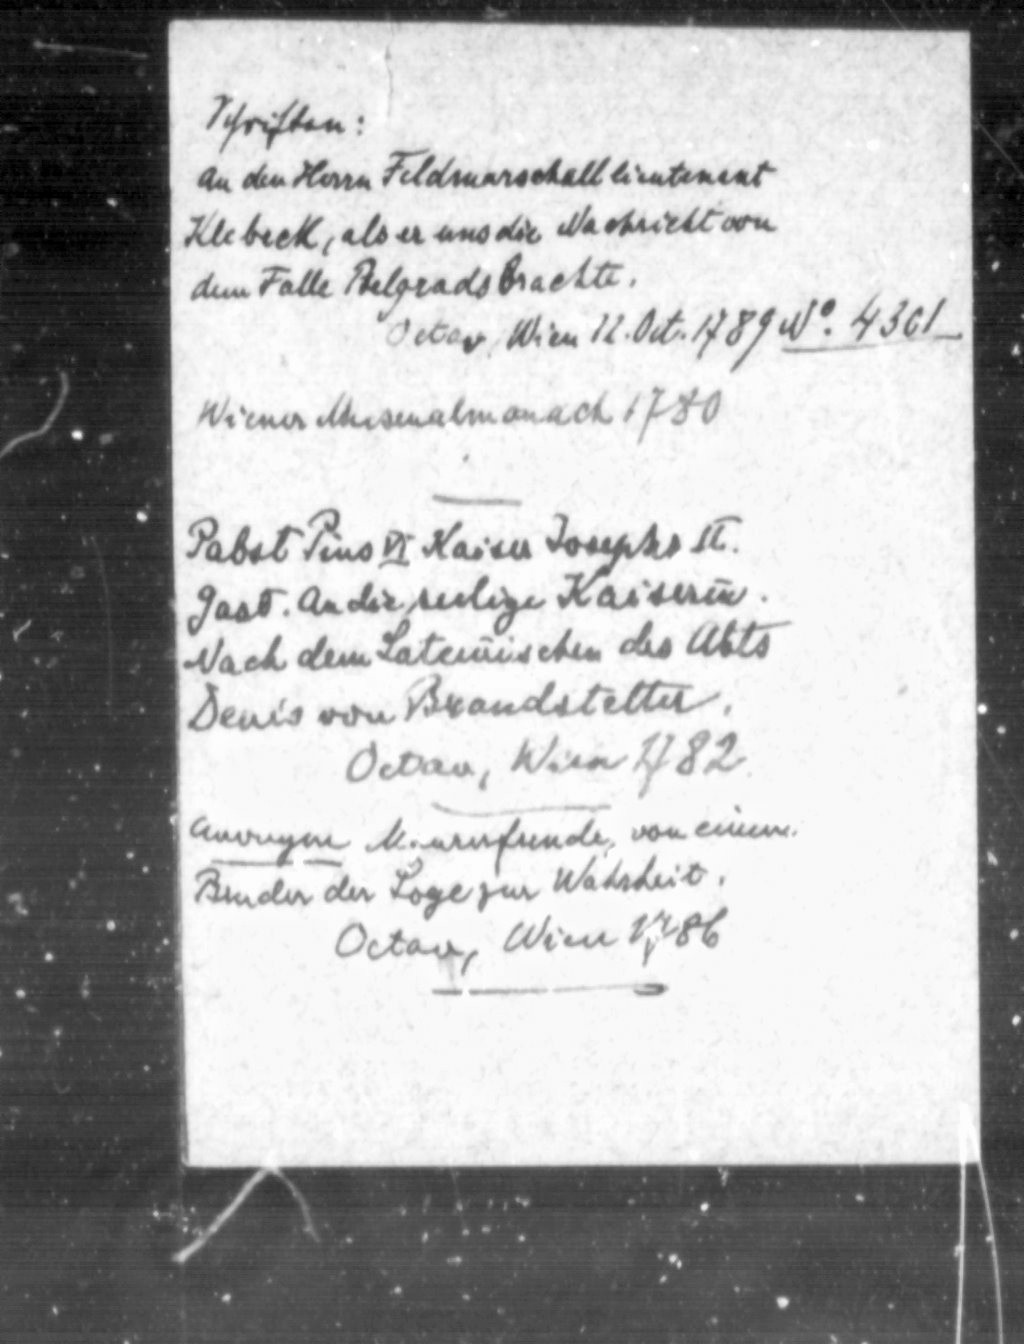 Schriften:
An den Herrn Feldmarschallieutenant
Klebeck, als er uns die Nachricht von
dem Falle Belgrads brachte.
Octav, Wien 12. Oct. 1789 No. 4361
Wiener Musenalmanach 1780
Pabst Pius VI Kaiser Josephs II.
Gast. An die seelige Kaiserin.
Nach dem Lateinischen des Abts
Denis von Brandstetter.
Octav, Wien 1782
Anonym Maurerfreude, von einem
Bruder der Loge zur Wahrheit.
Octav, Wien 1786